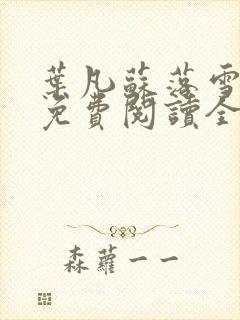 葉凡蘇落雪
免費閱讀全
森蘿一一